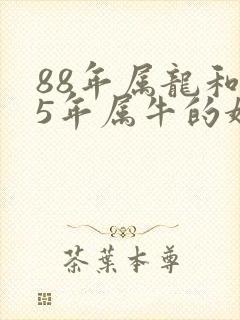 88年属龍和
5年属牛的
茶葉本尊